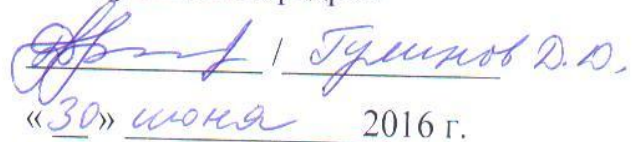 / Гулинов Д.О.
«30» июня 2016 г.